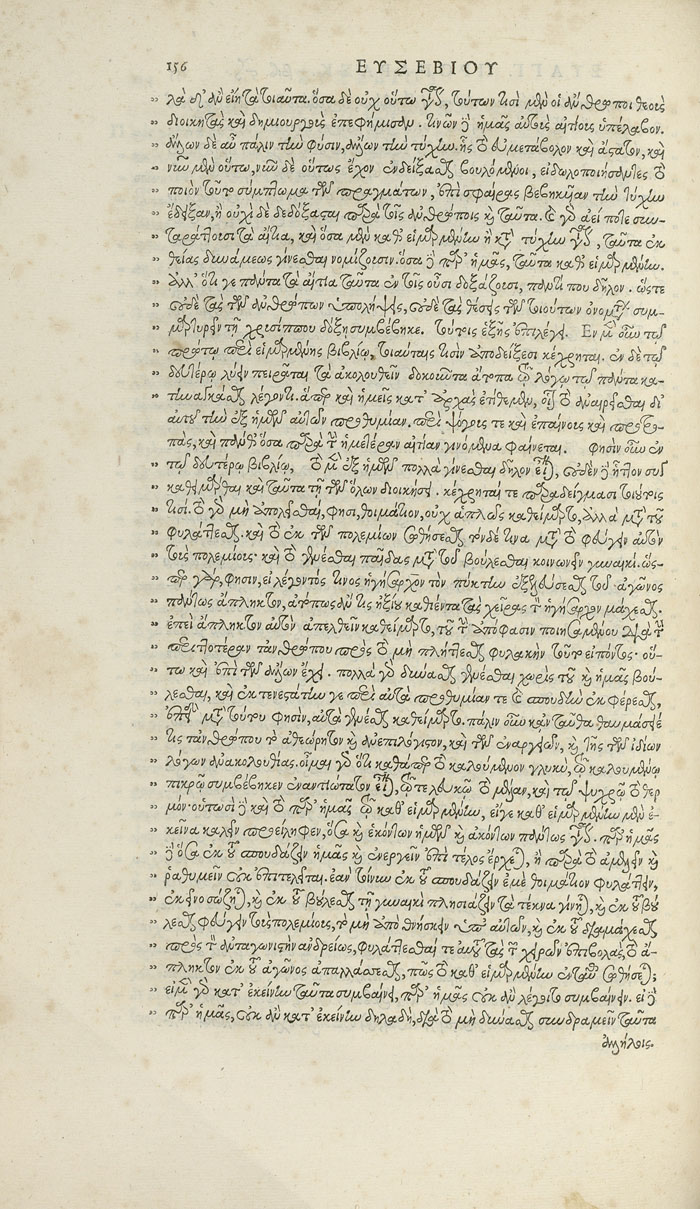 156 ΕΥΣΕΒΙΟΥ
λὰ δι' ἂν εἴη τὰ τοιαῦτα. ὅσα δὲ οὐχ οὕτω γίνεται, τούτων τισὶ μὲν οἱ ἄνθρωποι θεοὺς
διοικητὰς καὶ δημιουργοὺς ἐπεφήμισαν. τινῶν δὲ ἡμᾶς αὐτοὺς αἰτίους ὑπέλαβον.
ἄλλων δὲ αὖ πάλιν τὴν φύσιν, ἄλλων τὴν τύχην. ἧς τὸ εὐμετάβολον καὶ ἄστατον, καὶ
νῦν μὲν οὕτω, νῦν δὲ οὕτως ἔχον ἐνδείξασθαι βουλόμενοι, εἰδωλοποιήσαντες τὸ
ποιὸν τοῦτο σύμπτωμα τῶν πραγμάτων, ἐπὶ σφαίρας βεβηκυῖαν τὴν τύχην
ἔδειξαν, ἢ οὐχὶ δὲ δεδόξασται παρὰ τοῖς ἀνθρώποις καὶ ταῦτα. εἰ γὰρ ἀεί ποτε συν-
ταράττουσι τὰ αἴτια, καὶ ὅσα μὲν καθ' εἱμαρμένην ἢ κατὰ τύχην γίνεται, ταῦτα ἐκ
θείας δυνάμεως γίνεσθαι νομίζουσιν. ὅσα δὲ παρ' ἡμᾶς, ταῦτα καθ' εἱμαρμένην.
ἀλλ' ὅτι γε πάντα τὰ αἴτια ταῦτα ἐν τοῖς οὖσι δοξάζουσι, παντί που δῆλον. ὥστε
οὐδὲ τὰς τῶν ἀνθρώπων ὑπολήψεις, οὐδὲ τὰς θέσεις τῶν τοιούτων ὀνομάτων συμ-
μαρτυρεῖν τῇ χρυσίππου δόξῃ συμβέβηκε. τούτοις ἑξῆς ἐπιλέγει. Ἐν μὲν οὖν τῷ
πρώτῳ περὶ εἱμαρμένης βιβλίῳ, τοιαύταις τισὶν ἀποδείξεσι κέχρηται. ἐν δὲ τῷ
δευτέρῳ λύειν πειρᾶται τὰ ἀκολουθεῖν δοκοῦντα ἄτοπα τῷ λόγῳ τῷ πάντα κα-
τηναγκάσθαι λέγοντι. ἅπερ καὶ ἡμεῖς κατ' ἀρχὰς ἐτίθεμεν, οἷον τὸ ἀναιρεῖσθαι δι'
αὐτοῦ τὴν ἐξ ἡμῶν αὐτῶν προθυμίαν. περὶ ψόγους τε καὶ ἐπαίνους καὶ προτρο-
πὰς, καὶ πάνθ' ὅσα παρὰ τὴν ἡμετέραν αἰτίαν γινόμενα φαίνεται. Φησὶν οὖν ἐν
τῷ δευτέρῳ βιβλίῳ, τὸ μὲν ἐξ ἡμῶν πολλὰ γίνεσθαι δῆλον εἶναι, οὐδὲν δὲ ἧττον συγ
καθειμάρθαι καὶ ταῦτα τῇ τῶν ὅλων διοικήσει. κέχρηταί τε παραδείγμασι τούτοις
τισί. τὸ γὰρ μὴ ἀπολεῖσθαι, φησι, θοἰμάτιον, οὐχ ἁπλῶς καθείμαρτο, ἀλλὰ μετὰ τοῦ
φυλάττεσθαι. καὶ τὸ ἐκ τῶν πολεμίων σωθήσεσθαι τόνδέ τινα μετὰ τοῦ φεύγειν αὐτὸν
τοὺς πολεμίους· καὶ τὸ γενέσθαι παῖδας μετὰ τοῦ βούλεσθαι κοινωνεῖν γυναικί. ὥς-
περ γὰρ, φησιν, εἰ λέγοντός τινος ἡγήσαρχον τὸν πύκτην ἐξελεύσεσθαι τοῦ ἀγῶνος
πάντως ἄπληκτον, ἀτόπως ἄν τις ἠξίου καθιέντα τὰς χεῖρας τὸν ἡγήσαρχον μάχεσθαι.
ἐπεὶ ἄπληκτον αὐτὸν ἀπελθεῖν καθείμαρτο, τοῦ τὴν ἀπόφασιν ποιησαμένου διὰ τὴν
περιττοτέραν τἀνθρώπου πρὸς τὸ μὴ πλήττεσθαι φυλακὴν τοῦτο εἰπόντος· οὕ-
τω καὶ ἐπὶ τῶν ἄλλων ἔχει. πολλὰ γὰρ δύνασθαι γενέσθαι χωρὶς τοῦ καὶ ἡμᾶς βού-
λεσθαι, καὶ ἐκτενεστάτην γε περὶ αὐτὰ προθυμίαν τε καὶ σπουδὴν ἐκφέρεσθαι,
ἐπειδὴ μετὰ τούτου φησὶν, αὐτὰ γενέσθαι καθείμαρτο. πάλιν οὖν κἀνταῦθα θαυμάσειέ
τις τἀνθρώπου τὸ ἀθεώρητον καὶ ἀνεπιλόγιστον, καὶ τῶν ἐναργειῶν, καὶ τῆς τῶν ἰδίων
λόγων ἀνακολουθίας. οἶμαι γὰρ ὅτι καθάπερ τὸ καλούμενον γλυκὺ, τῷ καλουμένῳ
πικρῷ συμβέβηκεν ἐναντιώτατον εἶναι, τῷ τε λευκῷ τὸ μέλαν, καὶ τῷ ψυχρῷ τὸ θερ
μόν· οὑτωσὶ δὲ καὶ τὸ παρ' ἡμᾶς τῷ καθ' εἱμαρμένην, εἴγε καθ' εἱμαρμένην μὲν ἐ-
κεῖνα καλεῖν προείληφεν, ὅσα καὶ ἑκόντων ἡμῶν καὶ ἀκόντων πάντως γίνεται. παρ' ἡμᾶς
δὲ ὅσα ἐκ τοῦ σπουδάζειν ἡμᾶς καὶ ἐνεργεῖν ἐπὶ τέλος ἔρχεται, ἢ παρὰ τὸ ἀμελεῖν καὶ
ῥαθυμεῖν οὐκ ἐπιτελεῖται. ἐὰν τοίνυν ἐκ τοῦ σπουδάζειν ἐμὲ θοἰμάτιον φυλάττειν,
ἐκεῖνο σώζηται, καὶ ἐκ τοῦ βούλεσθαι τῇ γυναικὶ πλησιάζειν τὰ τέκνα γίνηται, καὶ ἐκ τοῦ βού
λεσθαι φεύγειν τοὺς πολεμίους, τὸ μὴ ἀποθνήσκειν ὑπ' αὐτῶν, καὶ ἐκ τοῦ διαμάχεσθαι
πρὸς τὸν ἀνταγωνιστὴν ἀνδρείως, φυλάττεσθαί τε αὐτοῦ τὰς τῶν χειρῶν ἐπιβολὰς, τὸ ἄ-
πληκτον ἐκ τοῦ ἀγῶνος ἀπαλλάσσεσθαι, πῶς τὸ καθ' εἱμαρμένην ἐνταῦθα σωθήσεται;
εἰ μὲν γὰρ κατ' ἐκείνην ταῦτα συμβαίνει, παρ' ἡμᾶς οὐκ ἂν λέγοιτο συμβαίνειν. εἰ δὲ
παρ' ἡμᾶς, οὐκ ἂν κατ' ἐκείνην δηλαδὴ, διὰ τὸ μὴ δύνασθαι συνδραμεῖν ταῦτα
ἀλλήλοις.